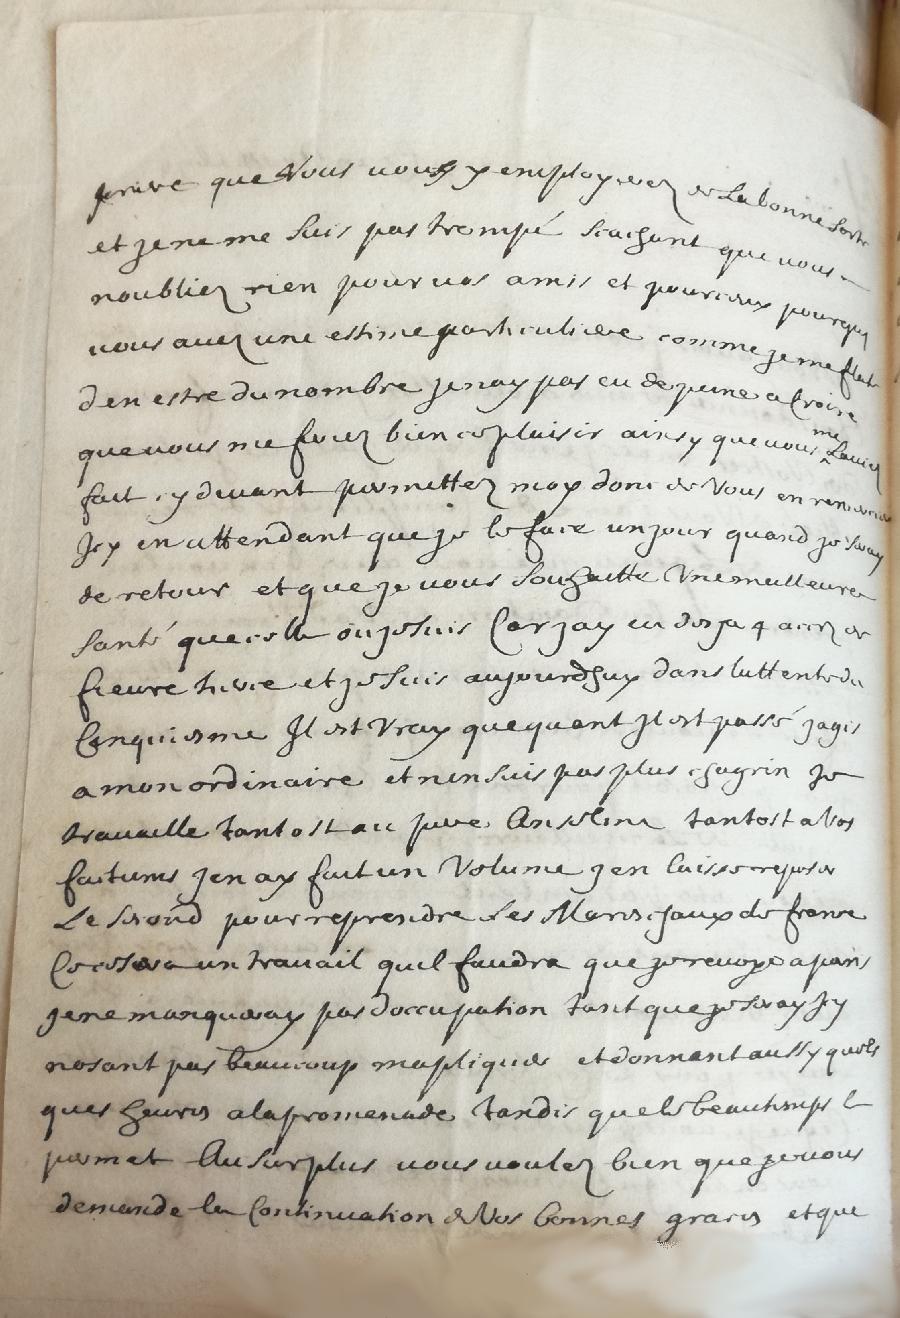 que Vous vous y employerez de La bonne sorte
et je ne me suis pas trompé scachant que vous
noubliez rien pour vos amis et pour ceux pour qui
vous avez une estime particuliere comme je me flate
den estre du nombre je nay pas eu de peine a Croire
que vous me feriez bien ce plaisir ainsy que vous me Laviez
fait cy devant permettez moy donc de Vous en remercier
Icy en attendant que je le face un jour quand je seray
de retour et que je vous souhaitte Une meilleure
santé que celle ou je suis Car jay eu desja 4 accez de
fieure tierce et je suis aujourdhuy dans lattente du
Cinquiesme Il est Vray que quant Il est passé jagis
a mon ordinaire et nen suis pas plus chagrin Je
travaille tantost au pere Anselme tantost a vos
factums jen ay fait un Volume jen laisse reposer
Le second pour reprendre Les Marechaux de france
Ce sera un travail quil faudra que je revoye a paris
je ne manqueray pas doccupation tant que je seray Icy
nosant pas beaucoup mapliquer et donnant aussy quels
ques heures a la promenade tandis que le beau temps l
permet Au surplus vous voulez bien que je vous
demande la Continuation de Vos bonnes graces et que